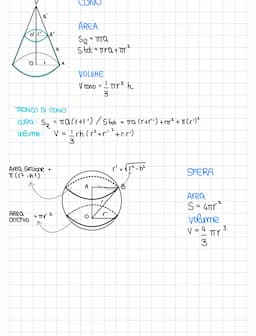 CONO
V
AREA
Sℓ = πra
S tot = πra + πr²
VOLUME
V cono = 1/3 πr² h
TRONCO DI CONO
area: Sℓ = πa(r+r') / S tot = πa(r+r') + πr² + π(r')²
volume: V = 1/3 πh (r² + r'² + r·r')
Area sezione =
π(r² - h²)
r' = √r²-h²
A
B
O
r
Area
cerchio = πr²
SFERA
Area
S = 4πr²
volume
V = 4/3 πr³